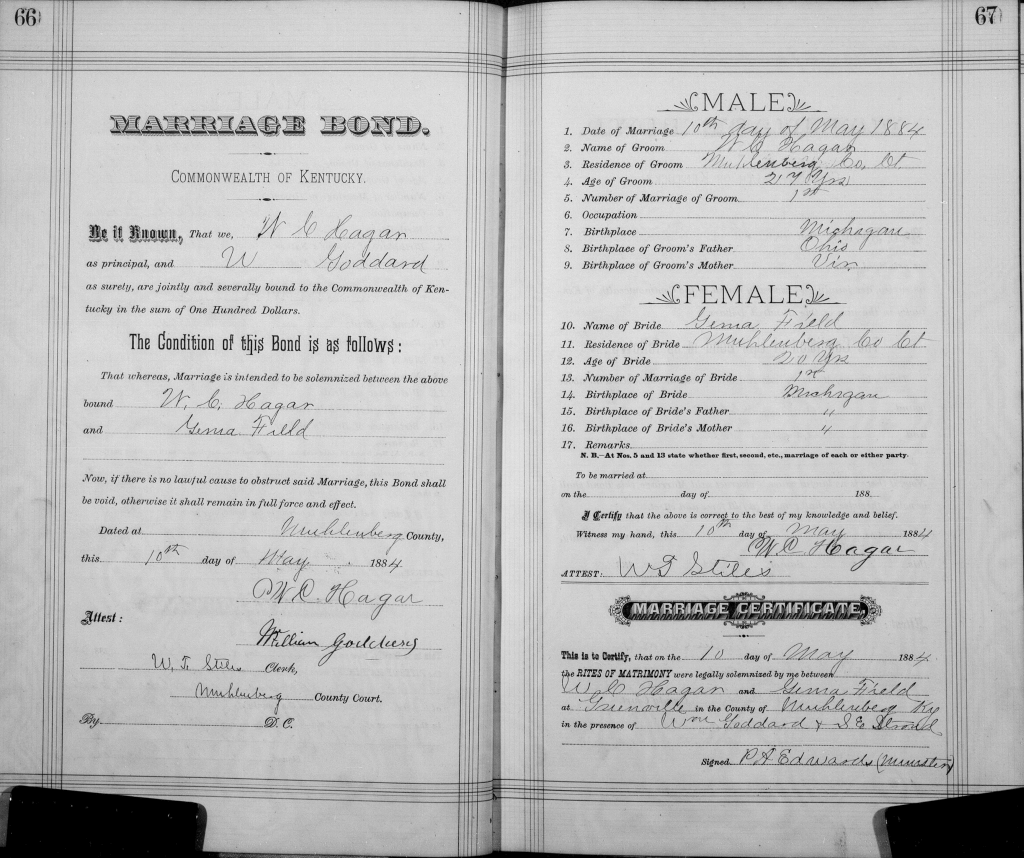 66
MARRIAGE BOND.
COMMONWEALTH OF KENTUCKY.
Be it Known, That we, W C Hagar
as principal, and W Goddard
as surety, are jointly and severally bound to the Commonwealth of Ken-
tucky in the sum of One Hundred Dollars.
The Condition of this Bond is as follows:
That whereas, Marriage is intended to be solemnized between the above
bound W. C. Hagar
and Gema Field
Now, if there is no lawful cause to obstruct said Marriage, this Bond shall
be void, otherwise it shall remain in full force and effect.
Dated at Muhlenberg County,
this 10th day of May 1884
W. C. Hagar
Attest:
William
W. T. Stiles Clerk,
Muhlenberg County Court.
By D. C.
67
MALE
1. Date of Marriage 10th day of May 1884
2. Name of Groom W C Hagar
3. Residence of Groom Muhlenberg Co, Ct.
4. Age of Groom 27 Yrs
5. Number of Marriage of Groom 1st
6. Occupation
7. Birthplace Michagan
8. Birthplace of Groom's Father Ohio
9. Birthplace of Groom's Mother Vir
FEMALE
10. Name of Bride Gema Field
11. Residence of Bride Muhlenberg Co Ct
12. Age of Bride 20 Yrs
13. Number of Marriage of Bride 1st
14. Birthplace of Bride Michigan
15. Birthplace of Bride's Father "
16. Birthplace of Bride's Mother "
17. Remarks
N. B.—At Nos. 5 and 13 state whether first, second, etc., marriage of each or either party.
To be married at
on the day of 188
I Certify that the above is correct to the best of my knowledge and belief.
Witness my hand, this 10th day of May 1884
W. C. Hagar
ATTEST: W T Stiles
MARRIAGE CERTIFICATE.
This is to Certify, that on the 10 day of May 1884.
the RITES OF MATRIMONY were legally solemnized by me between
W C Hagar and Gema Field
at Greenville in the County of Muhlenberg Ky
in the presence of Wm Goddard & S E
Signed P A Edwards (Minister)